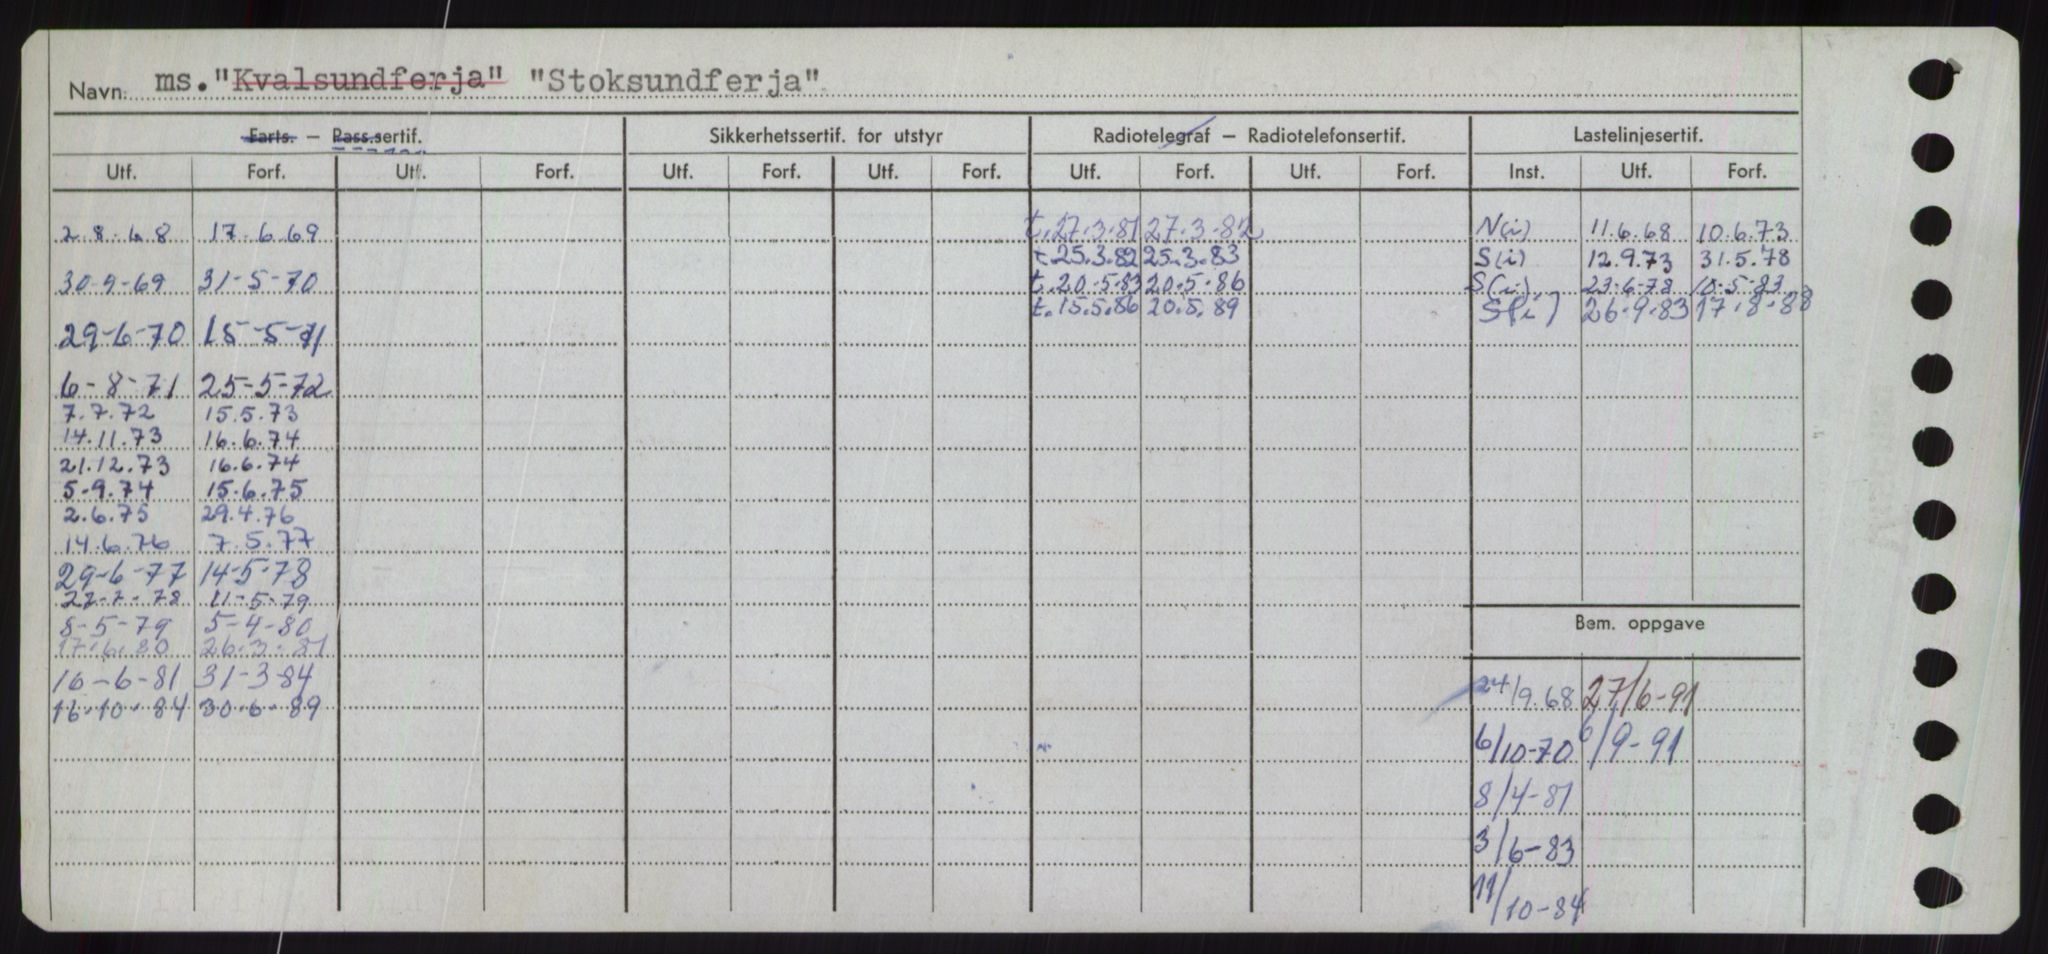 Navn: ms. "Kvalsundferja" "Stoksundferja"
Farts. — Pass.sertif. Sikkerhetssertif. for utstyr Radiotelegraf — Radiotelefonsertif. Lastelinjesertif.
Utf. Forf. Utf. Forf. Utf. Forf. Utf. Forf. Utf. Forf. Utf. Forf. Inst. Utf. Forf.
2.8.68 17.6.69 t.27.3.81 27.3.82 N(i) 11.6.68 10.6.73
t.25.3.82 25.3.83 S(i) 12.9.73 31.5.78
30-9-69 31-5-70 t.20.5.83 20.5.86 S(i) 23-6-78 10-5-83
t.15.5.86 20.5.89 S(i) 26.9.83 17.8-88
29-6-70 15-5-71
6-8-71 25-5-72
7.7.72 15.5.73
14.11.73 16.6.74
21.12.73 16.6.74
5.9.74 15.6.75
2.6.75 29.4.76
14.6.76 7.5.77
29-6-77 14-5-78
27-7-78 11-5-79
8-5-79 5-4-80
17.6.80 26.3.81
16-6-81 31-3-84
16.10.84 30.6.89
Bem. oppgave
24/9.68 27/6-91
6/10-70 6/9-91
8/4-81
3/6-83
11/10-84